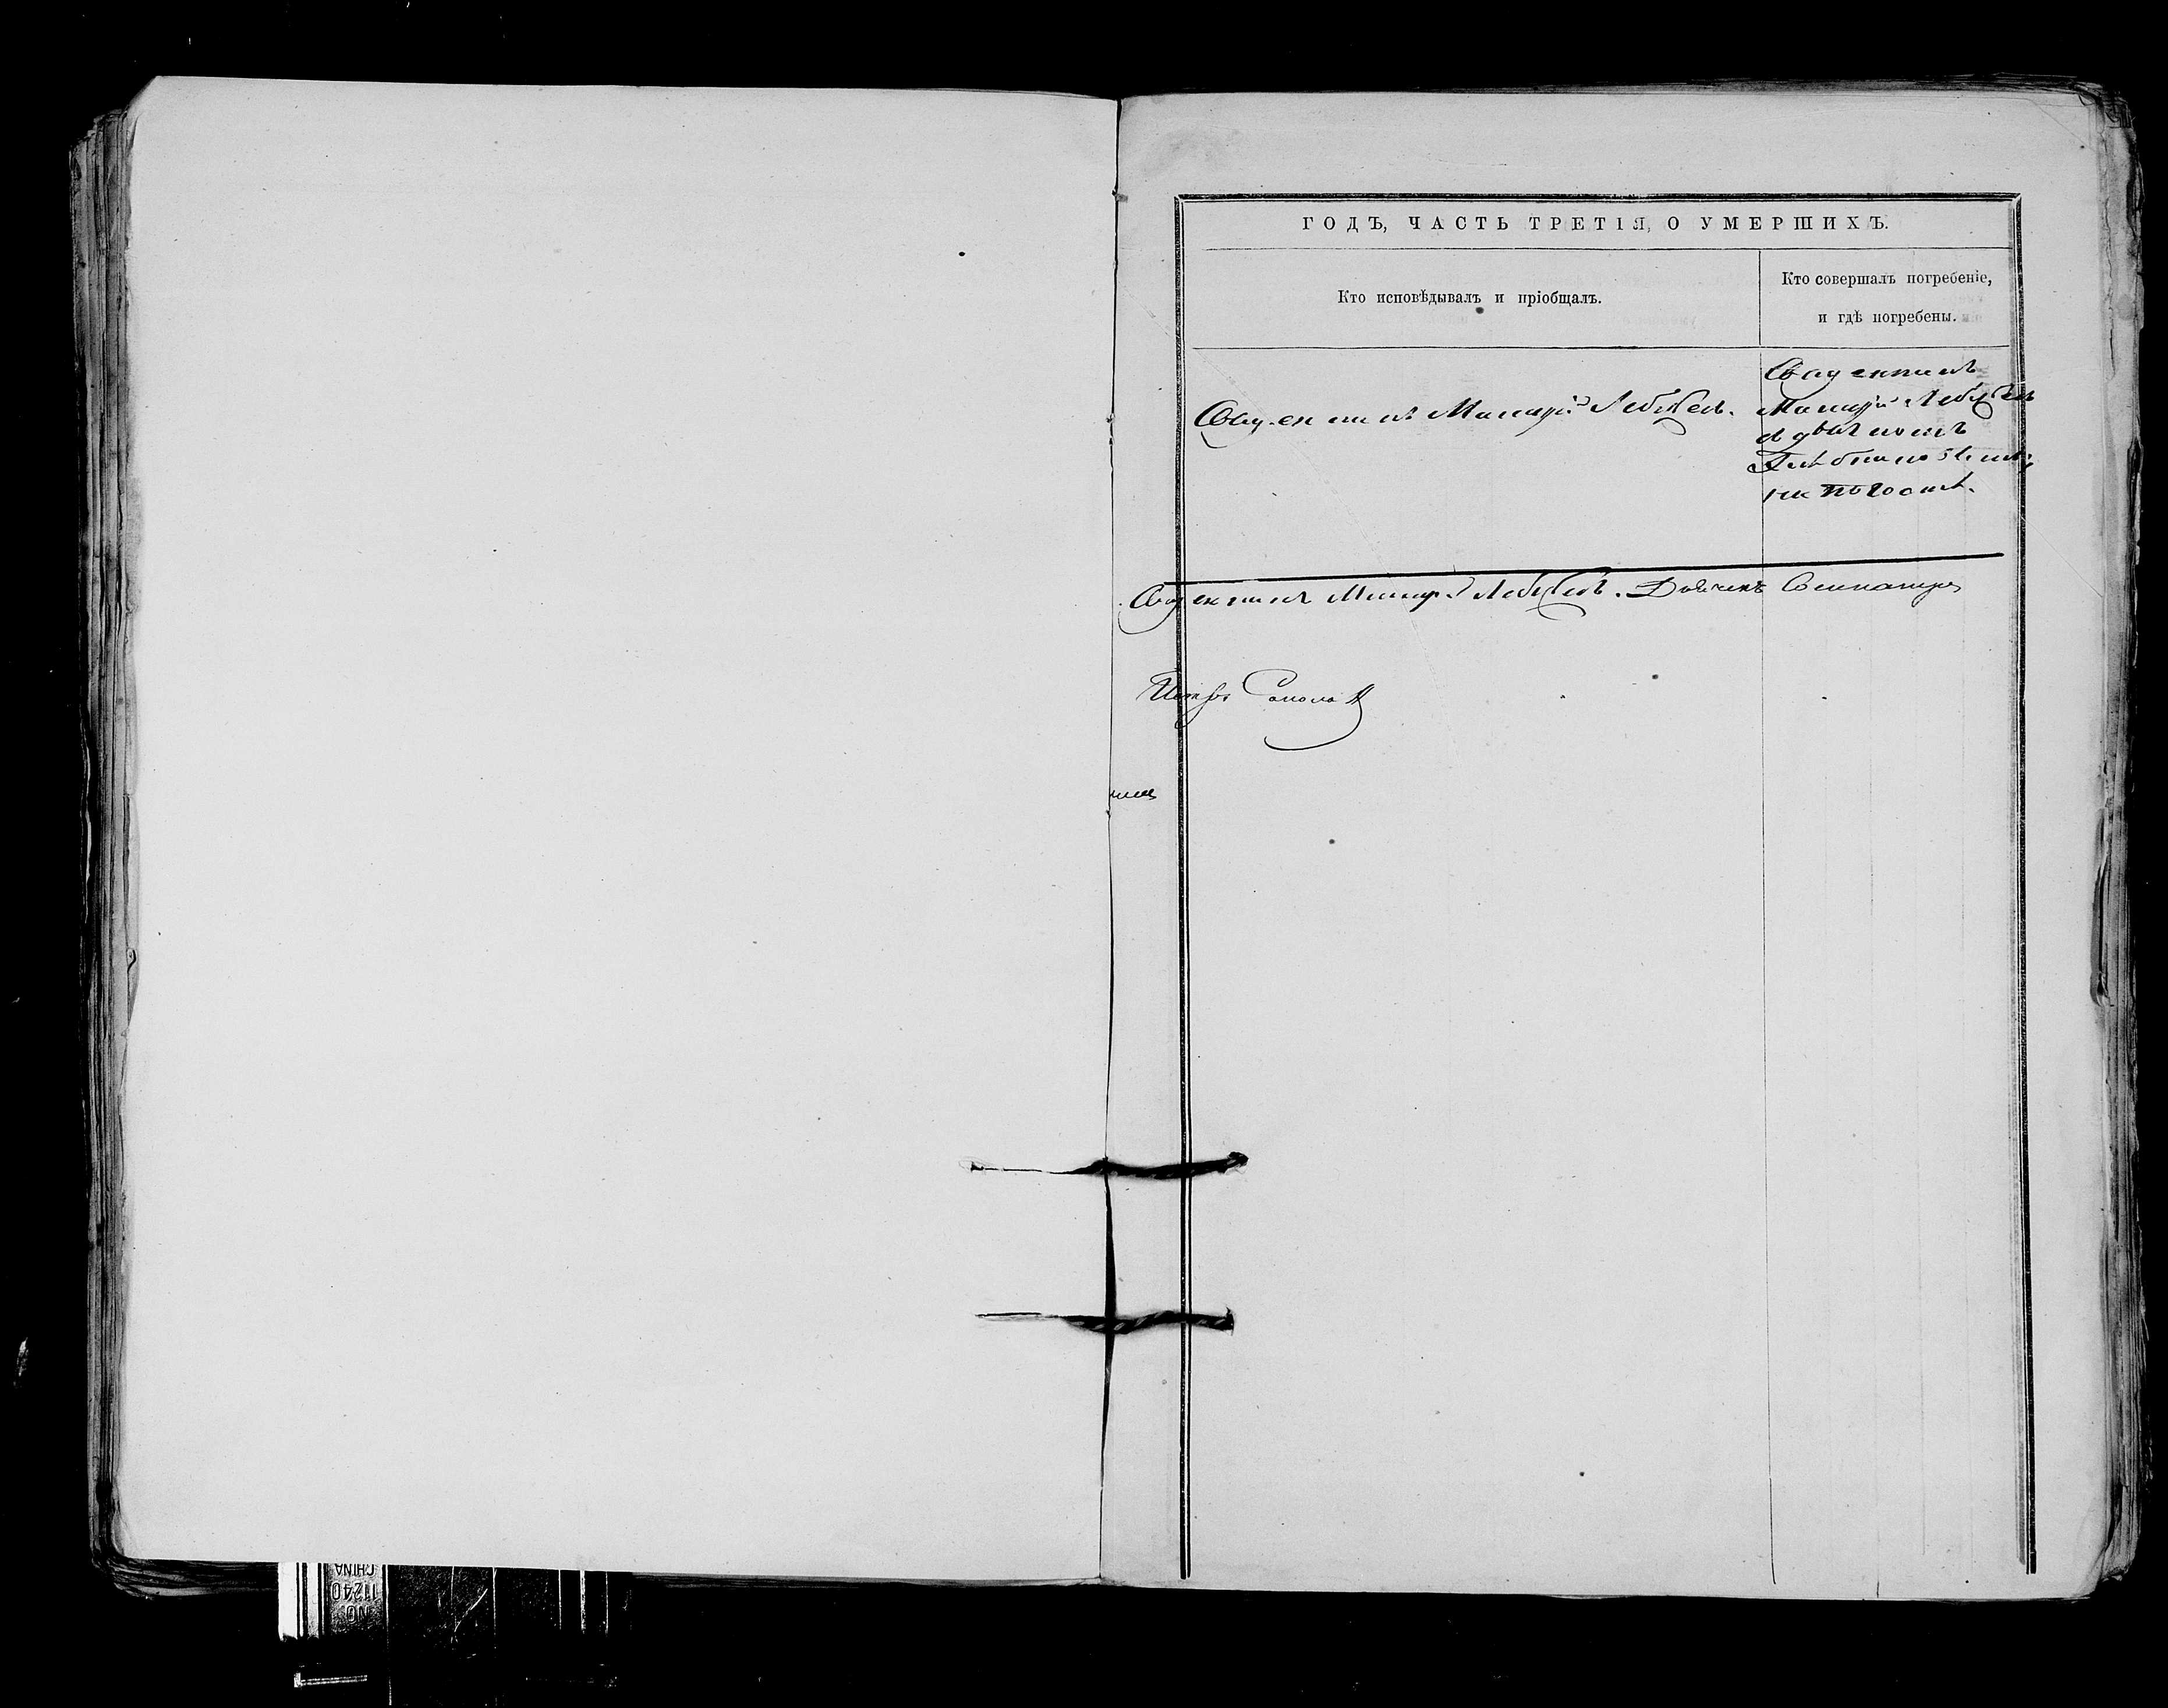 ГОДЪ, ЧАСТЬ ТРЕТІЯ, О УМЕРШИХЪ.
Кто исповѣдывалъ и пріобщалъ.
Кто совершалъ погребеніе,
и гдѣ погребены.
Священникъ Лебедевъ.
Священникъ
Лебедевъ
на погостѣ.
Священникъ Лебедевъ. Дьячекъ
Петръ Соколов
NO
11240
CHINA